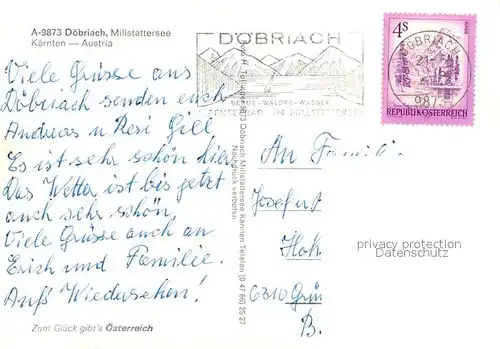 A-9873 Döbriach, Millstättersee
Kärnten — Austria
Viele Grüsse aus
Döbriach senden euch
Andreas u. Resi Gill
Es ist sehr schön hier
Das Wetter ist bis jetzt
auch sehr schön.
Viele Grüsse auch an
Erich und Familie.
Auf's Wiedersehen!
Zum Glück gibt's Österreich
9873 Döbriach Millstättersee Kärnten Telefon (0 47 66) 25 27
Nachdruck verboten
DÖBRIACH
BERGE - WALDER - WASSER
AM MILLSTÄTTERSEE
4S
REPUBLIK ÖSTERREICH
DÖBRIACH
987
An Famili
Josef u
Hoh
6310 Grün
B.
privacy protection
Datenschutz